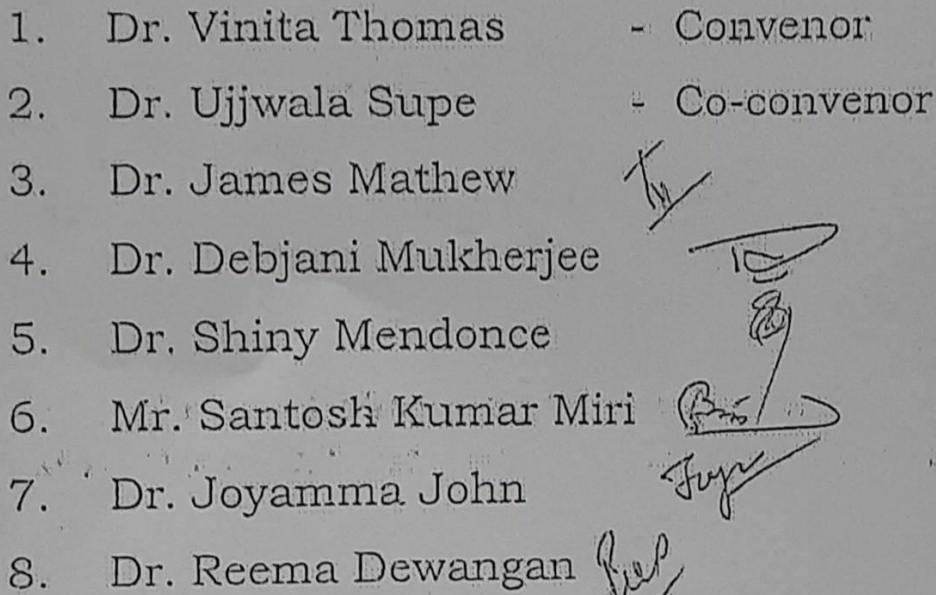 1. Dr. Vinita Thomas - Convenor
2. Dr. Ujjwala Supe - Co-convenor
3. Dr. James Mathew
4. Dr. Debjani Mukherjee
5. Dr. Shiny Mendonce
6. Mr. Santosh Kumar Miri
7. Dr. Joyamma John
8. Dr. Reema Dewangan